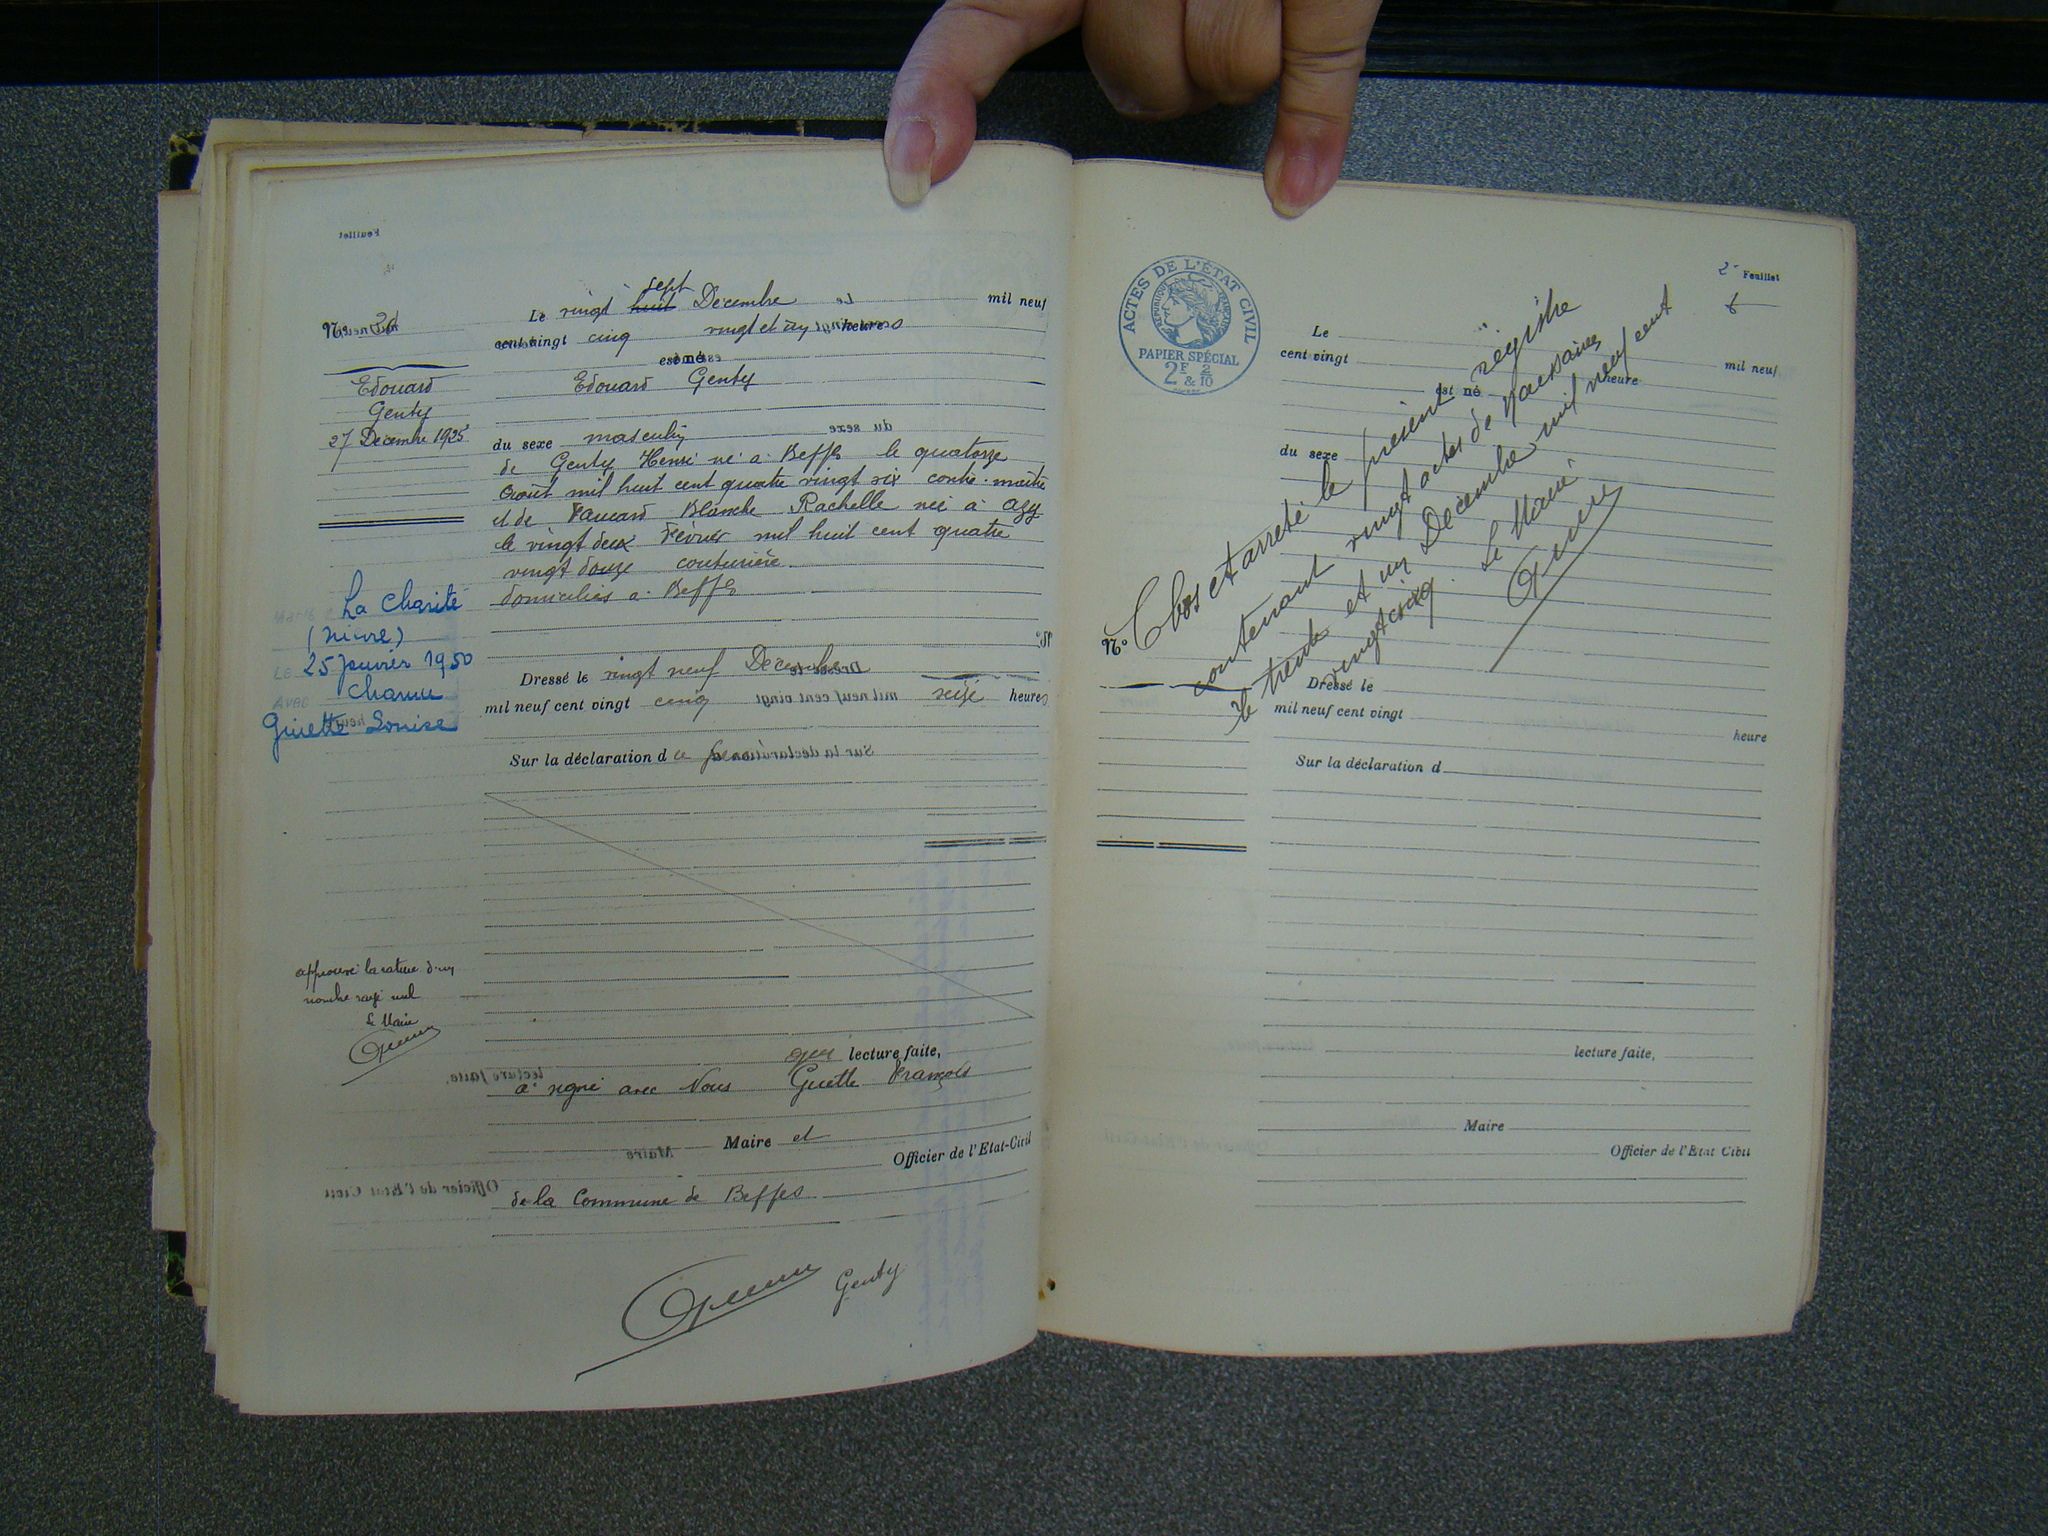 N° 20
Edouard
Genty
27 Décembre 1925
Le vingt huit sept Décembre mil neuf
cent vingt cinq vingt et un heures
est né
Edouard Genty
du sexe masculin
de Genty Henri né à Beffes le quatorze
Août mil huit cent quatre vingt six contre-maitre
et de Faucard Blanche Rachelle née à Azy
le vingt deux Février mil huit cent quatre
vingt douze couturière
domiciliés à Beffes
Marié à La Charité
(Nièvre)
Le 25 Janvier 1950
Avec
Ginette Louise
Dressé le vingt neuf Décembre
mil neuf cent vingt cinq seize heures
Sur la déclaration du père
approuvé la rature d'un
Le Maire
qui lecture faite,
a signé avec Nous Guette François
Maire et
Officier de l'Etat-Civil
de la Commune de Beffes
Genty
ACTES DE L'ÉTAT CIVIL
RÉPUBLIQUE FRANÇAISE
PAPIER SPÉCIAL
2F & 2/10
2e Feuillet
6
Le mil neuf
cent vingt heure
est né
du sexe
Clos et arrêté le présent registre
contenant vingt actes de Naissances
le trente et un Décembre mil neuf cent
vingt cinq. Le Maire
N°
Dressé le
mil neuf cent vingt
heure
Sur la déclaration d
lecture faite,
Maire
Officier de l'Etat Civil